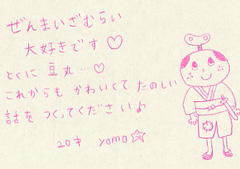 ぜんまいざむらい
大好きです♡
とくに 豆丸…♡
これからも かわいくて たのしい
話を つくってください♪
20才 yomo☆